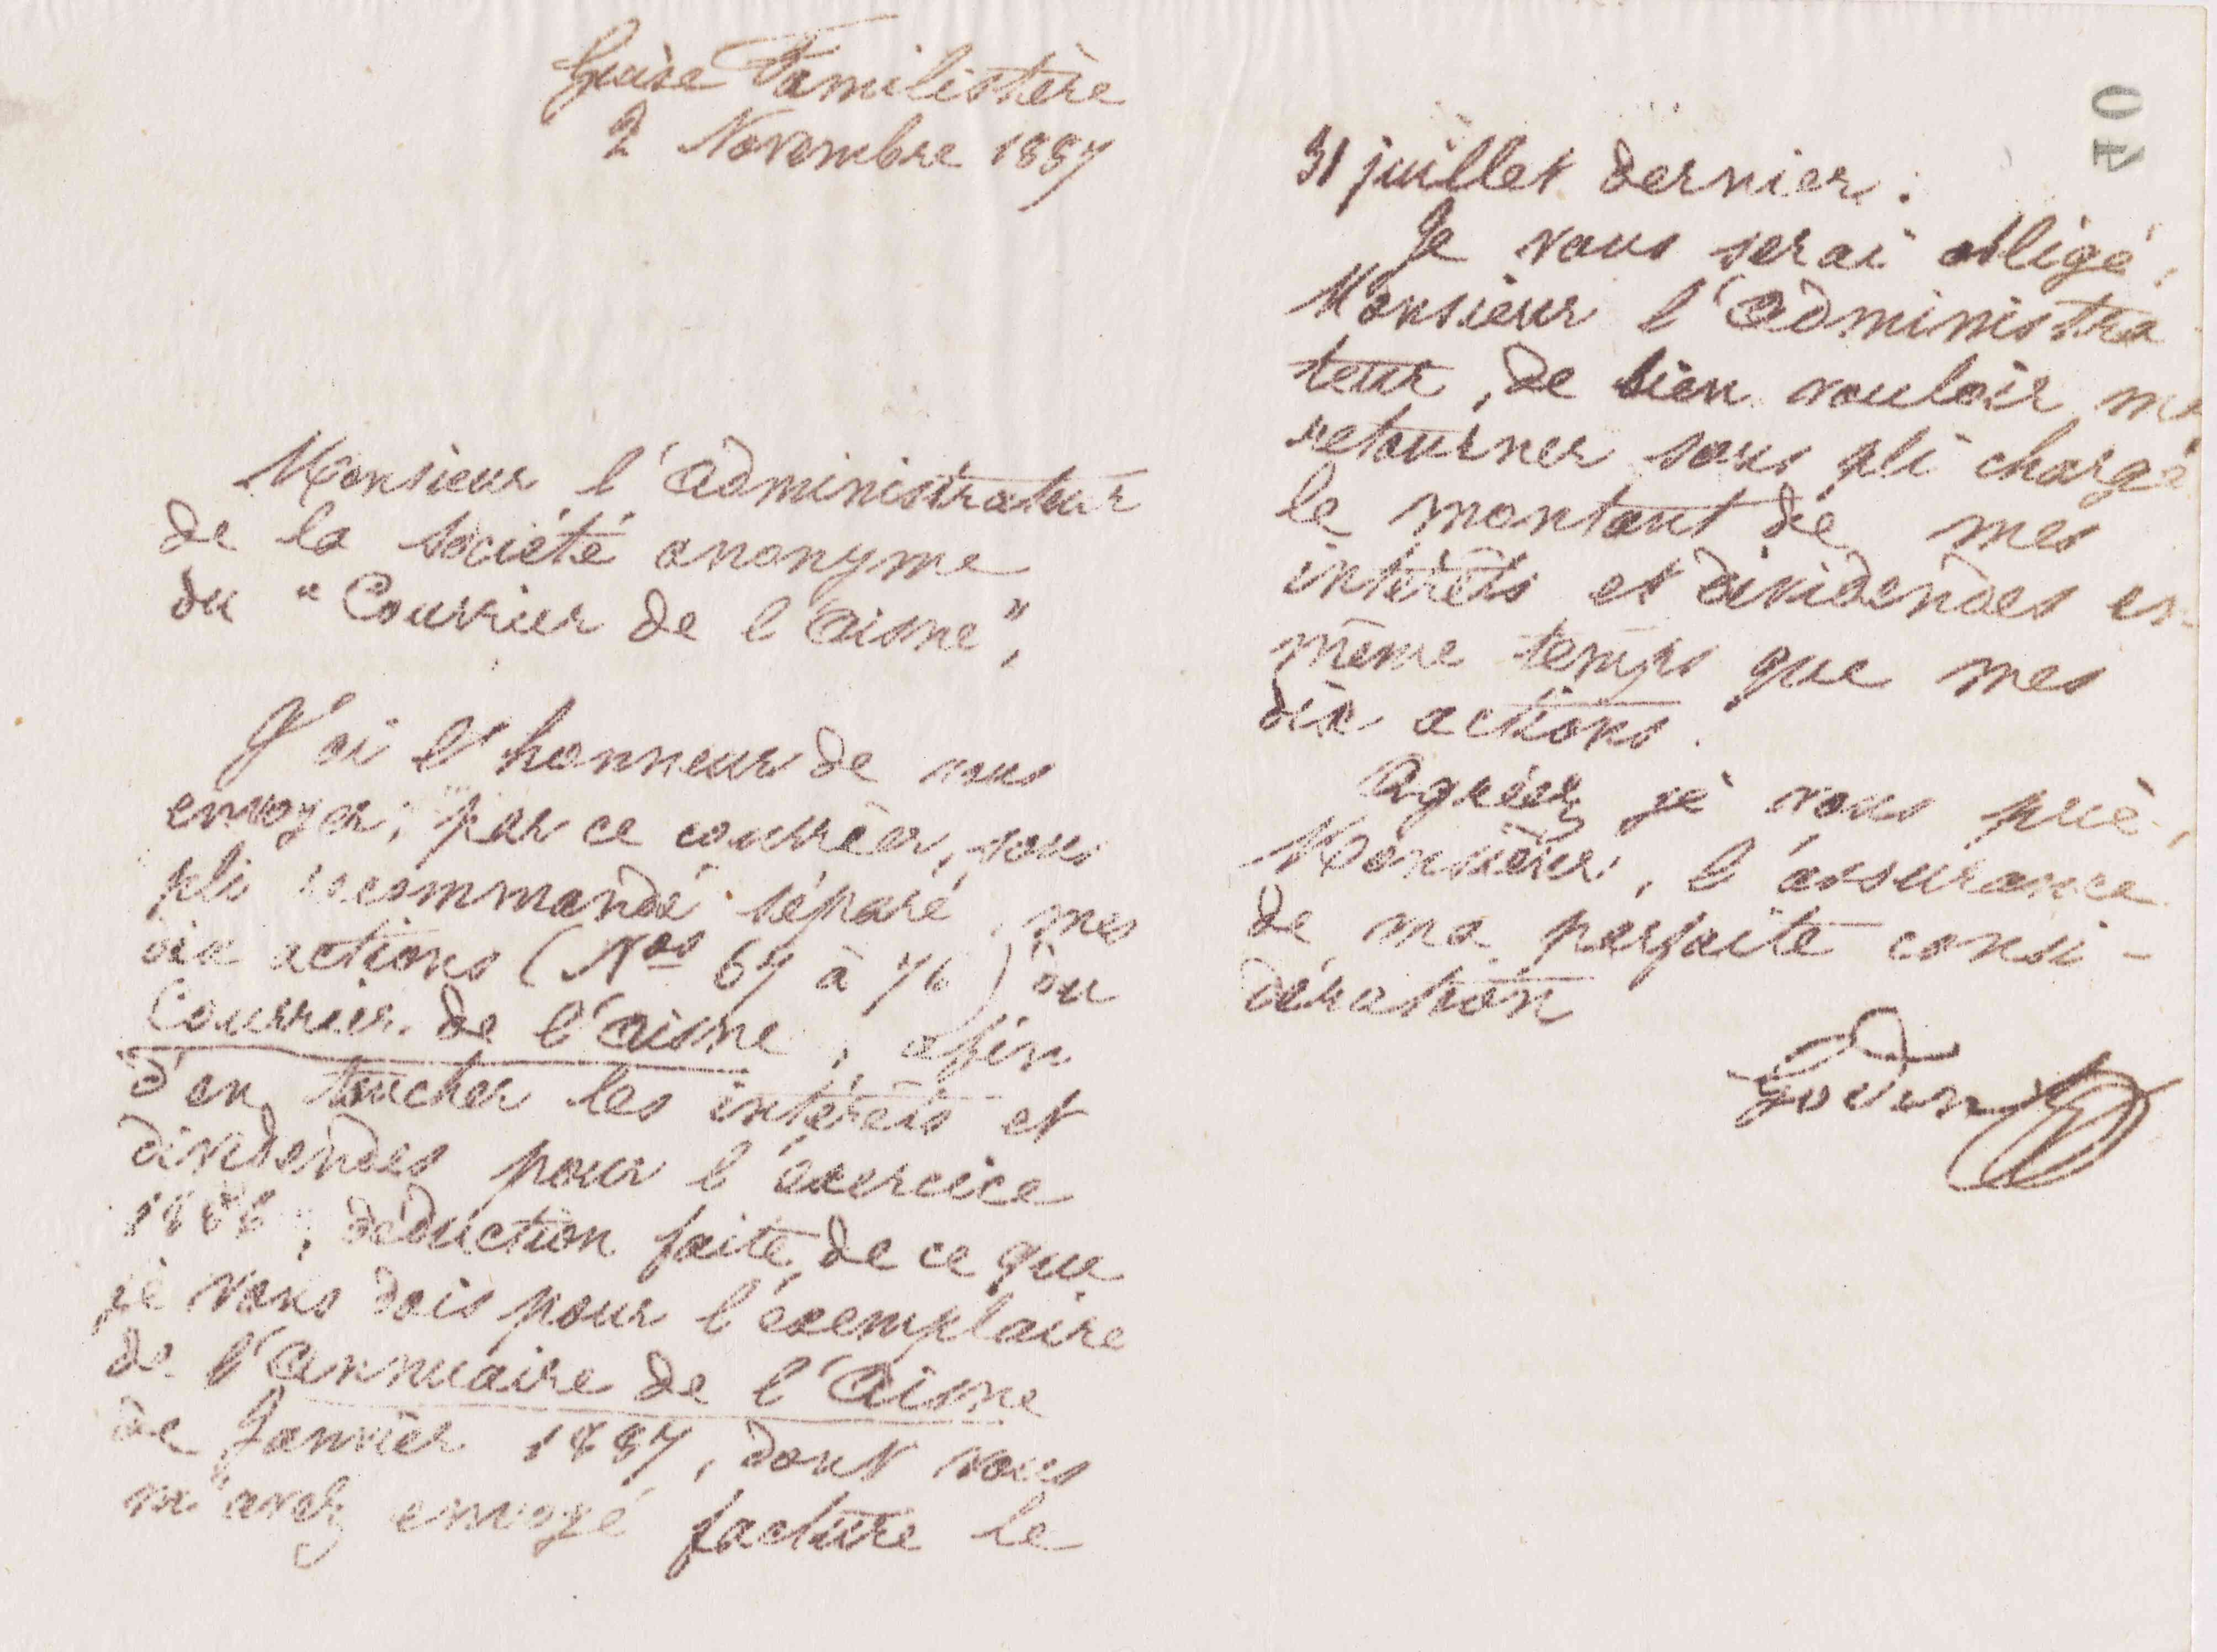 Guise Familistère
2 Novembre 1887
Monsieur l'administrateur
de la société anonyme
du "Courrier de l'Aisne",
J'ai l'honneur de vous
envoyer, par ce courrier, sous
pli recommandé séparé, mes
dix actions (Nos 67 à 76) du
Courrier de l'Aisne, afin
d'en toucher les intérêts et
dividendes pour l'exercice
1886, déduction faite de ce que
je vous dois pour l'exemplaire
de l'Annuaire de l'Aisne
de Janvier 1887, dont vous
m'avez envoyé facture le
31 juillet dernier.
Je vous serai obligé,
Monsieur l'administra
teur, de bien vouloir me
retourner sous pli chargé
le montant de mes
intérêts et dividendes en
même temps que mes
dix actions.
Agréez, je vous prie,
Monsieur, l'assurance
de ma parfaite consi-
dération
Godin